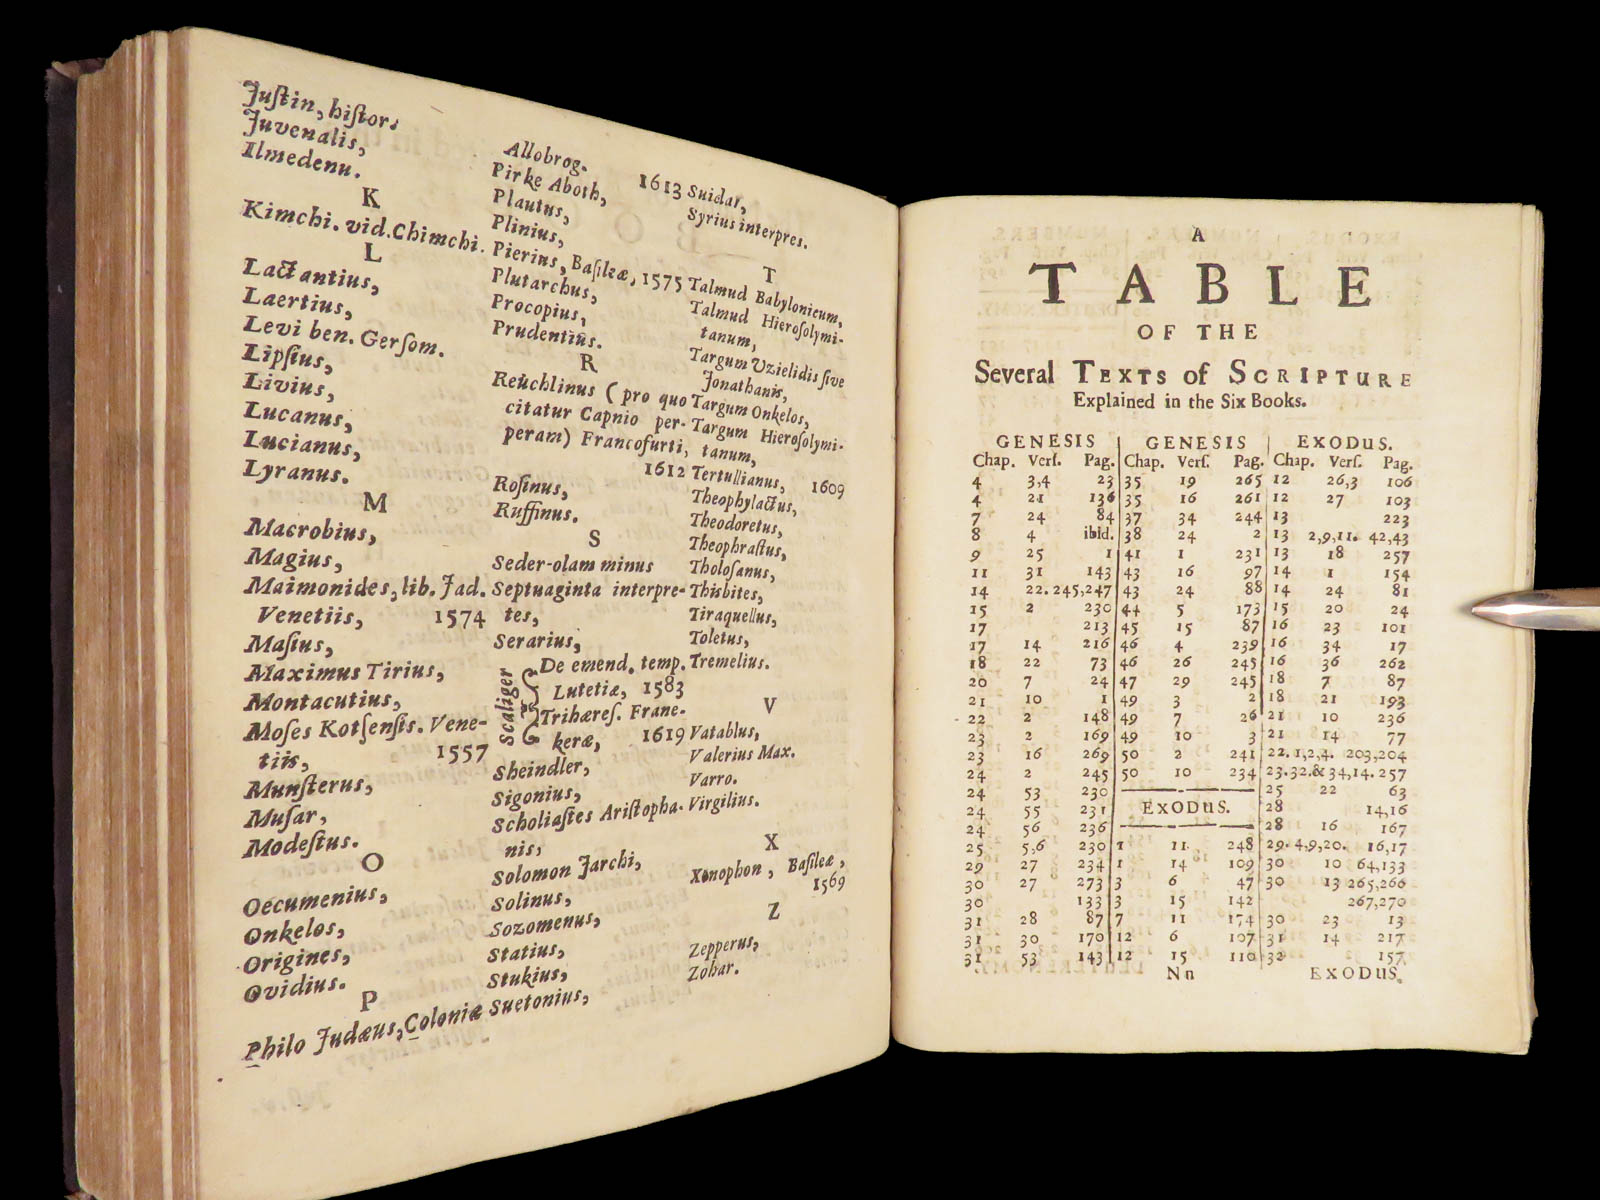 Juſtin, hiſtor.
Juvenalis,
Ilmedenu.
K
Kimchi. vid. Chimchi.
L
Lactantius,
Laertius,
Levi ben. Gerſom.
Lipſius,
Livius,
Lucanus,
Lucianus,
Lyranus.
M
Macrobius,
Magius,
Maimonides, lib. Jad.
Venetiis, 1574
Maſius,
Maximus Tirius,
Montacutius,
Moſes Kotſenſis. Vene-
tiis, 1557
Munſterus,
Muſar,
Modeſtus.
O
Oecumenius,
Onkelos,
Origines,
Ovidius.
P
Philo Judæus, Coloniæ
Allobrog. 1613
Pirke Aboth,
Plautus,
Plinius,
Pierius, Baſileæ, 1575
Plutarchus,
Procopius,
Prudentius.
R
Reuchlinus ( pro quo
citatur Capnio per-
peram) Francofurti,
1612
Roſinus,
Ruffinus.
S
Seder-olam minus
Septuaginta interpre-
tes,
Serarius,
Scaliger
De emend. temp.
Lutetiæ, 1583
Trihæreſ. Frane-
keræ, 1619
Sheindler,
Sigonius,
Scholiaſtes Ariſtopha-
nis,
Solomon Jarchi,
Solinus,
Sozomenus,
Statius,
Stukius,
Suetonius,
Suidas,
Syrius interpres.
T
Talmud Babylonicum,
Talmud Hieroſolymi-
tanum,
Targum Uzielidis ſive
Jonathanis,
Targum Onkelos,
Targum Hieroſolymi-
tanum,
Tertullianus, 1609
Theophylactus,
Theodoretus,
Theophraſtus,
Tholoſanus,
Thisbites,
Tiraquellus,
Toletus,
Tremelius.
V
Vatablus,
Valerius Max.
Varro.
Virgilius.
X
Xenophon, Baſileæ,
1569
Z
Zepperus,
Zohar.
A
TABLE
OF THE
Several TEXTS of SCRIPTURE
Explained in the Six Books.
GENESIS
Chap. Verſ. Pag.
4 3,4 23
4 21 136
7 24 84
8 4 ibid.
9 25 1
11 31 143
14 22. 245,247
15 2 230
17 213
17 14 216
18 22 73
20 7 24
21 10 1
22 2 148
23 2 169
23 16 269
24 2 245
24 53 230
24 55 231
24 56 236
25 5,6 230
29 27 234
30 27 273
30 133
31 28 87
31 30 170
31 53 143
GENESIS
Chap. Verſ. Pag.
35 19 265
35 16 261
37 34 244
38 24 2
41 1 231
43 16 97
43 24 88
44 5 173
45 15 87
46 4 239
46 26 245
47 29 245
49 3 2
49 7 26
49 10 3
50 2 241
50 10 234
EXODUS.
1 11 248
1 14 109
3 6 47
3 15 142
7 11 174
12 6 107
12 15 110
EXODUS.
Chap. Verſ. Pag.
12 26,3 106
12 27 103
13 223
13 2,9,11. 42,43
13 18 257
14 1 154
14 24 81
15 20 24
16 23 101
16 34 17
16 36 262
18 7 87
18 21 193
21 10 236
21 14 77
22. 1,2,4. 203,204
23.32.& 34,14. 257
25 22 63
28 14,16
28 16 167
29. 4,9,20. 16,17
30 10 64,133
30 13 265,266
267,270
30 23 13
31 14 217
32 157
Nn EXODUS.